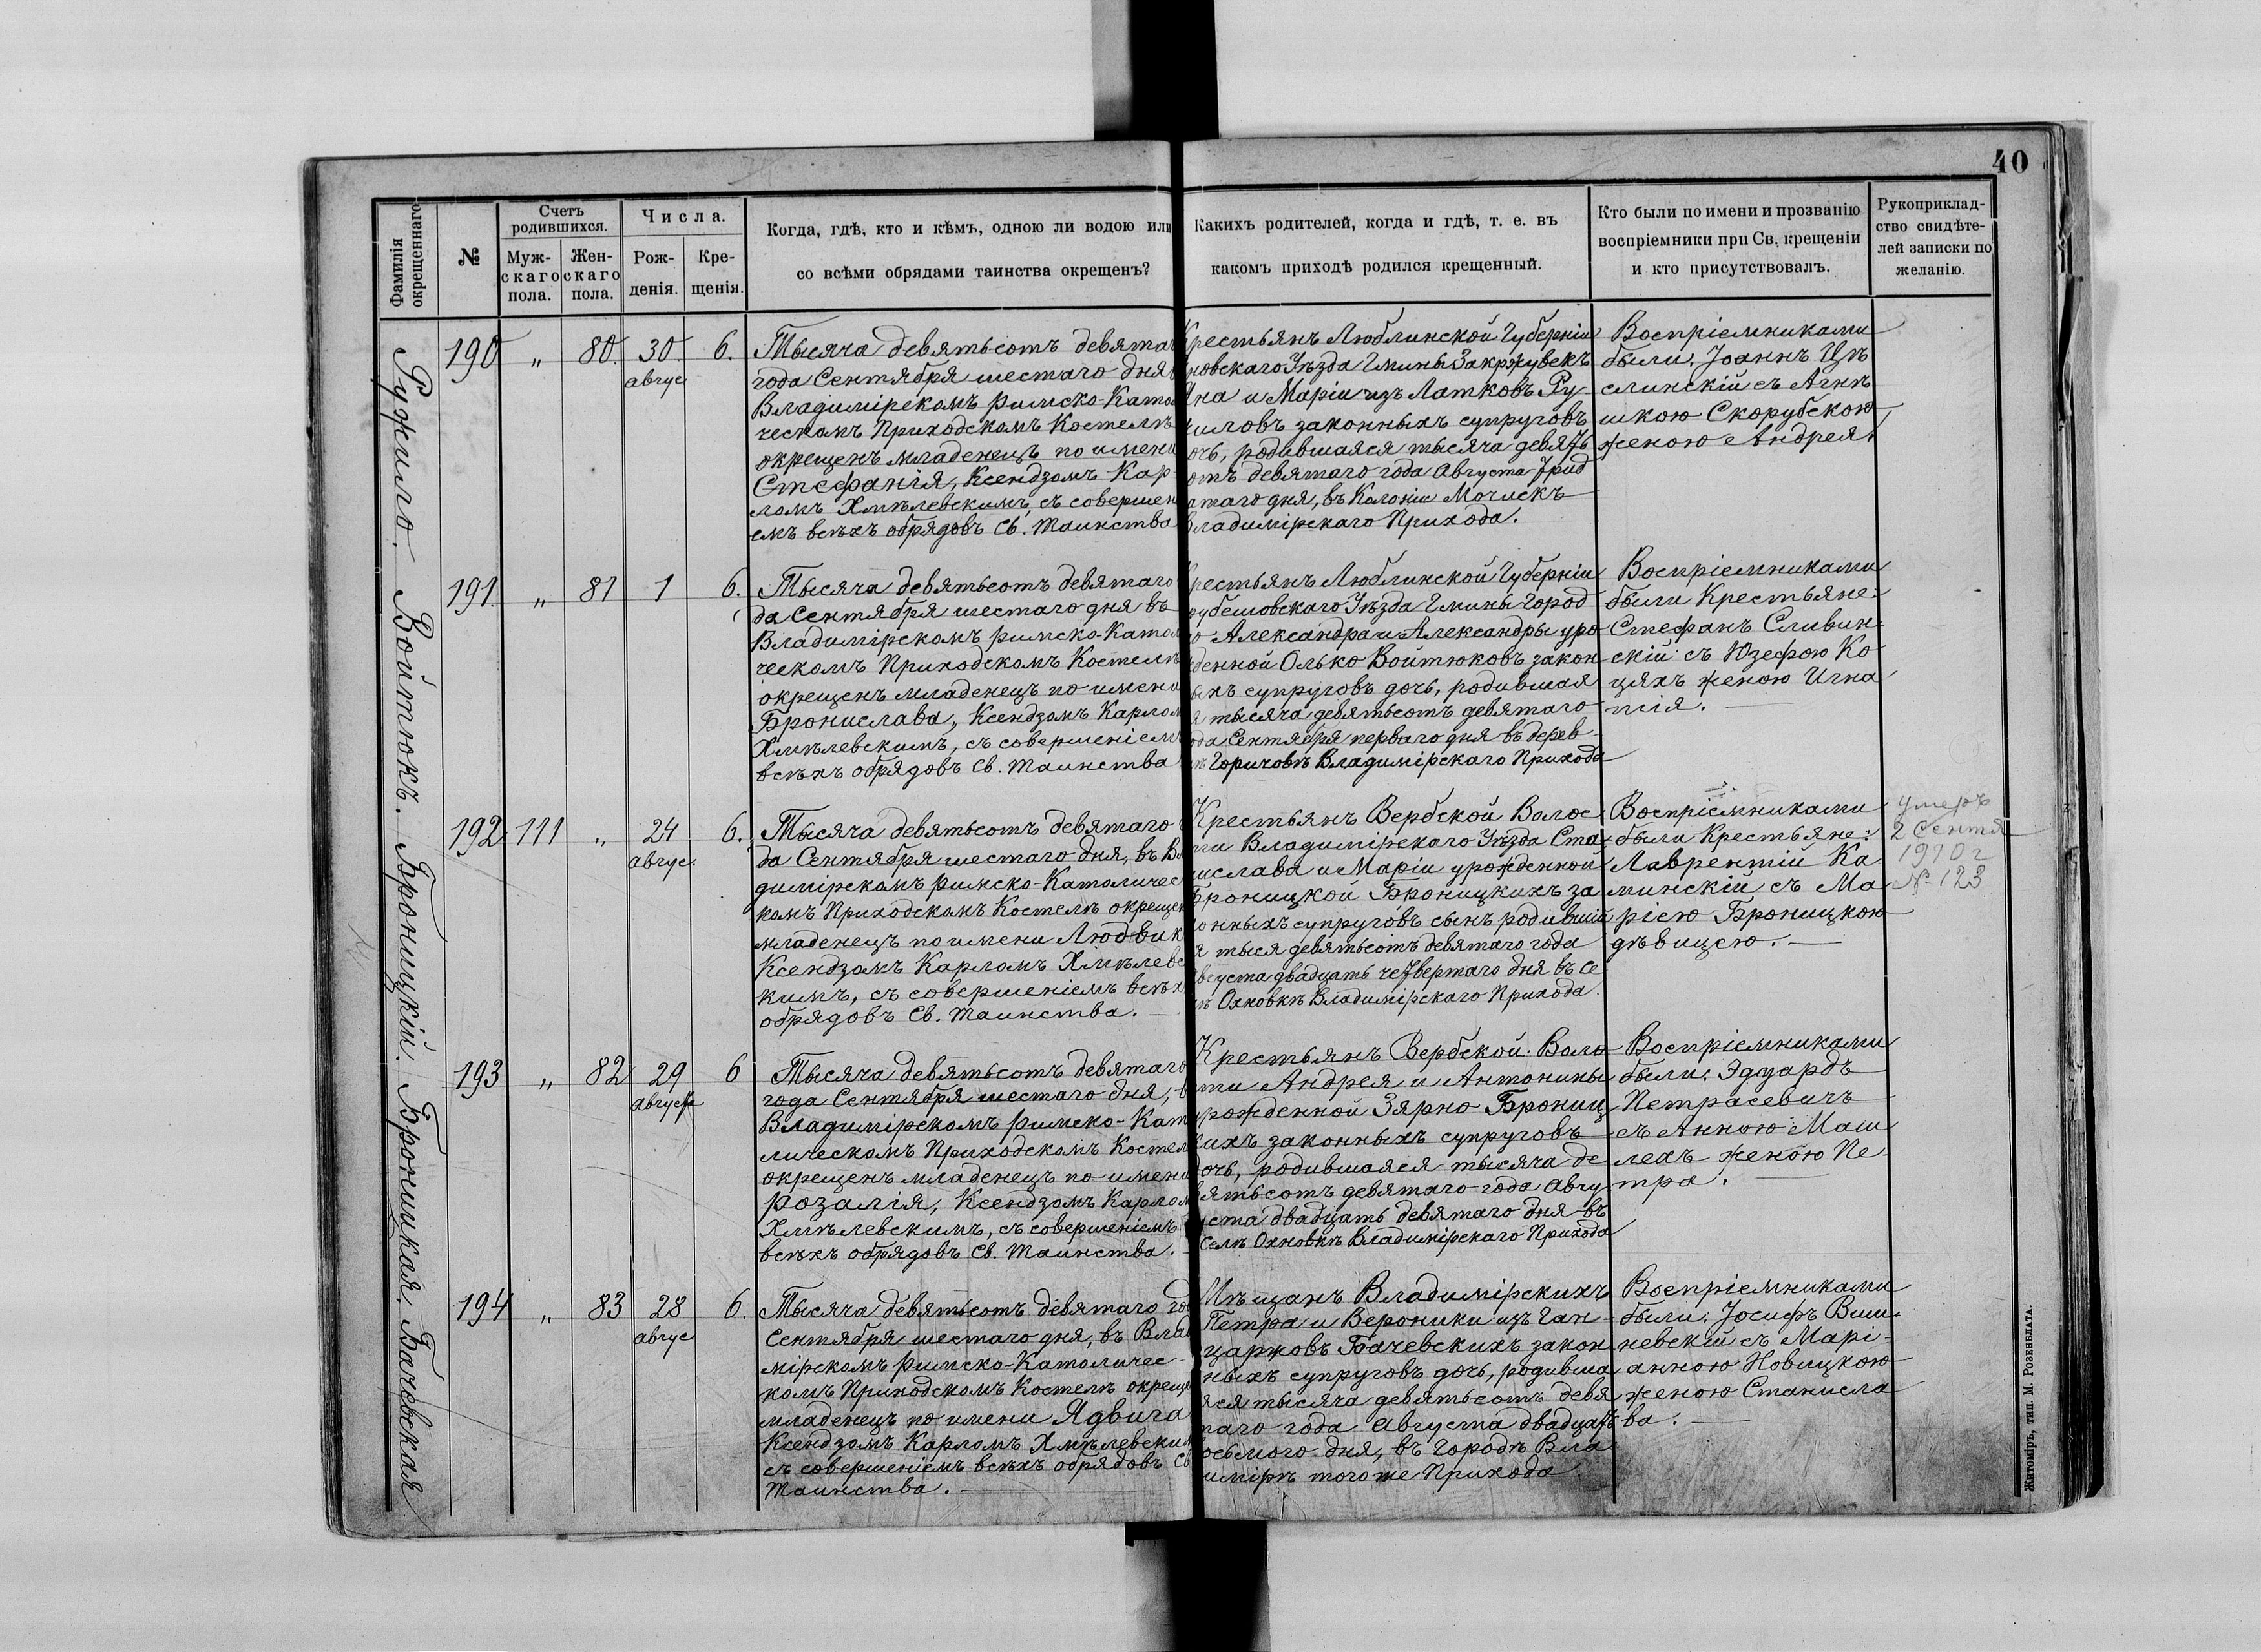 40
Фамилія окрещеннаго
№
Счетъ родившихся.
Муж-
скаго
пола.
Жен-
скаго
пола.
Числа.
Рож-
денія.
Кре-
щенія.
Когда, гдѣ, кто и кѣмъ, одною ли водою или
со всѣми обрядами таинства окрещенъ?
Какихъ родителей, когда и гдѣ, т. е. въ
какомъ приходѣ родился крещенный.
Кто были по имени и прозванію
воспріемники при Св. крещеніи
и кто присутствовалъ.
Рукоприклад-
ство свидѣте-
лей записки по
желанію.
Ружило.
190 „ 80. 30 6.
авгус
Тысяча девятьсотъ девята
года Сентября шестаго дня
Владимірскомъ римско-Като
ческомъ Приходскомъ Костелѣ
окрещенъ младенецъ по имени
Стефанія, Ксендзомъ Кар-
ломъ Хмѣлевскимъ, съ совершен
емъ всѣхъ обрядовъ Св. Таинства
Крестьянъ Люблинской Губерніи
новскаго Уѣзда Гмины Закржувекъ
Яна и Маріи изъ Латковъ Ру-
иловъ законныхъ супруговъ
очь, родившаяся тысяча девять
отъ девятаго года Августа трид
таго дня, въ Колоніи Мочискъ
Владимірскаго Прихода.
Воспріемниками
были: Іоаннъ Цѣ
слинскій съ Агнѣ
шкою Скорубскою
женою Андрея.
Войтюкъ.
191. „ 81 1 6.
Тысяча девятьсотъ девятаго
да Сентября шестаго дня въ
Владимірскомъ римско-Катол
ческомъ Приходскомъ Костелѣ
окрещенъ младенецъ по имени
Бронислава, Ксендзомъ Карлом
Хмѣлевскимъ, съ совершеніемъ
всѣхъ обрядовъ Св. Таинства
рестьянъ Люблинской Губерніи
рубешовскаго Уѣзда Гмины Город
о Александра и Александры уро
жденной Олько Войтюковъ закон
ыхъ супруговъ дочь, родившая
я тысяча девятьсотъ девятаго
ода Сентября перваго дня въ дерев
нѣ Горичовѣ Владимірскаго Прихода
Воспріемниками
были Крестьяне:
Стефанъ Сливин-
скій съ Юзефою Ко
цяхъ женою Игна
тія.
Броницкій.
192 111 „ 24 6.
авгус.
Тысяча девятьсотъ девятаго
да Сентября шестаго дня, въ Вла
димірскомъ римско-Католичес
комъ Приходскомъ Костелѣ окрещен
младенецъ по имени Людвик
Ксендзомъ Карломъ Хмѣлевс
кимъ, съ совершеніемъ всѣх
обрядовъ Св. Таинства.
Крестьянъ Вербской Волос
ти Владимірскаго Уѣзда Ста-
нислава и Маріи урожденной
Броницкой Броницкихъ за
онныхъ супруговъ сынъ, родившій
я тыся девятьсотъ девятаго года
Августа двадцать четвертаго дня въ се
лѣ Охновкѣ Владимірскаго Прихода.
Воспріемниками
были Крестьяне:
Лаврентій Ка
минскій съ Ма
рією Броницкою
дѣвицею.
умеръ
2 Сентя
1910 г
№ 123
Броницкая.
193 „ 82 29 6
августа
Тысяча девятьсотъ девятаго
года Сентября шестаго дня, в
Владимірскомъ римско-Като
лическомъ Приходскомъ Костел
окрещенъ младенецъ по имени
Розалія, Ксендзомъ Карлом
Хмѣлевскимъ, съ совершеніемъ
всѣхъ обрядовъ Св. Таинства.
Крестьянъ Вербской Воло
сти Андрея и Антонины
урожденной Зярно Брониц
кихъ законныхъ супруговъ
дочь, родившаяся тысяча де
вятьсотъ девятаго года Авгу
ста двадцать девятаго дня въ
Селѣ Охновкѣ Владимірскаго Прихода
Воспріемниками
были: Эдуардъ
Петрасевичъ
съ Анною Маш
лехъ женою Пе
тра.
Бачевская
194 „ 83 28 6.
авгус
Тысяча девятьсотъ девятаго го
Сентября шестаго дня, въ Влад
мірскомъ римско-Католичес-
комъ Приходскомъ Костелѣ окреще
младенецъ по имени Ядвига
Ксендзомъ Карломъ Хмѣлевским
съ совершеніемъ всѣхъ обрядовъ Св
Таинства.
Мѣщанъ Владимірскихъ
Петра и Вероники изъ Ган-
царжовъ Бачевскихъ закон
ныхъ супруговъ дочь, родивша
яся тысяча девятьсотъ девя
таго года Августа двадцать
осьмого дня, въ Городѣ Вла
димірѣ тогоже Прихода
Воспріемниками
были: Іосифъ Виш-
невскій съ Марі-
анною Новицкою
женою Станисла
ва.
Житоміръ, тип. М. Розенблата.